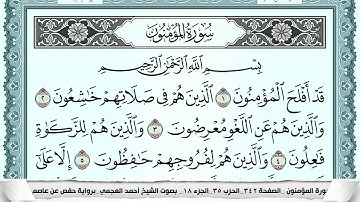 سُورَةُ المُؤْمِنُونَ
بِسْمِ اللَّهِ الرَّحْمَٰنِ الرَّحِيمِ
قَدْ أَفْلَحَ الْمُؤْمِنُونَ ١ الَّذِينَ هُمْ فِي صَلَاتِهِمْ خَاشِعُونَ ٢
وَالَّذِينَ هُمْ عَنِ اللَّغْوِ مُعْرِضُونَ ٣ وَالَّذِينَ هُمْ لِلزَّكَاةِ
فَاعِلُونَ ٤ وَالَّذِينَ هُمْ لِفُرُوجِهِمْ حَافِظُونَ ٥ إِلَّا عَلَىٰ
ورة المؤمنون _ الصفحة ٣٤٢ _ الحزب ٣٥ _ الجزء ١٨ _ بصوت الشيخ احمد العجمي برواية حفص عن عاصم